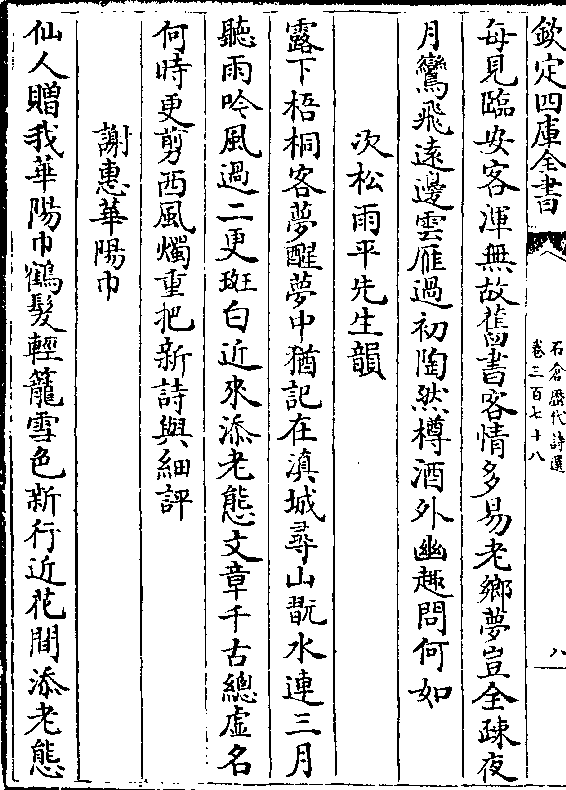 欽定四庫全書
石倉歷代詩選
卷三百七十八
八
每見臨安客渾無故舊書客情多易老鄉夢豈全疎夜
月鸞飛遠邊雲雁過初陶然樽酒外幽趣問何如
次松雨平先生韻
露下梧桐客夢醒夢中猶記在滇城尋山翫水連三月
聽雨吟風過二更斑白近來添老態文章千古總虛名
何時更剪西風燭重把新詩與細評
謝惠華陽巾
仙人贈我華陽巾鶴髮輕籠雪色新行近花間添老態